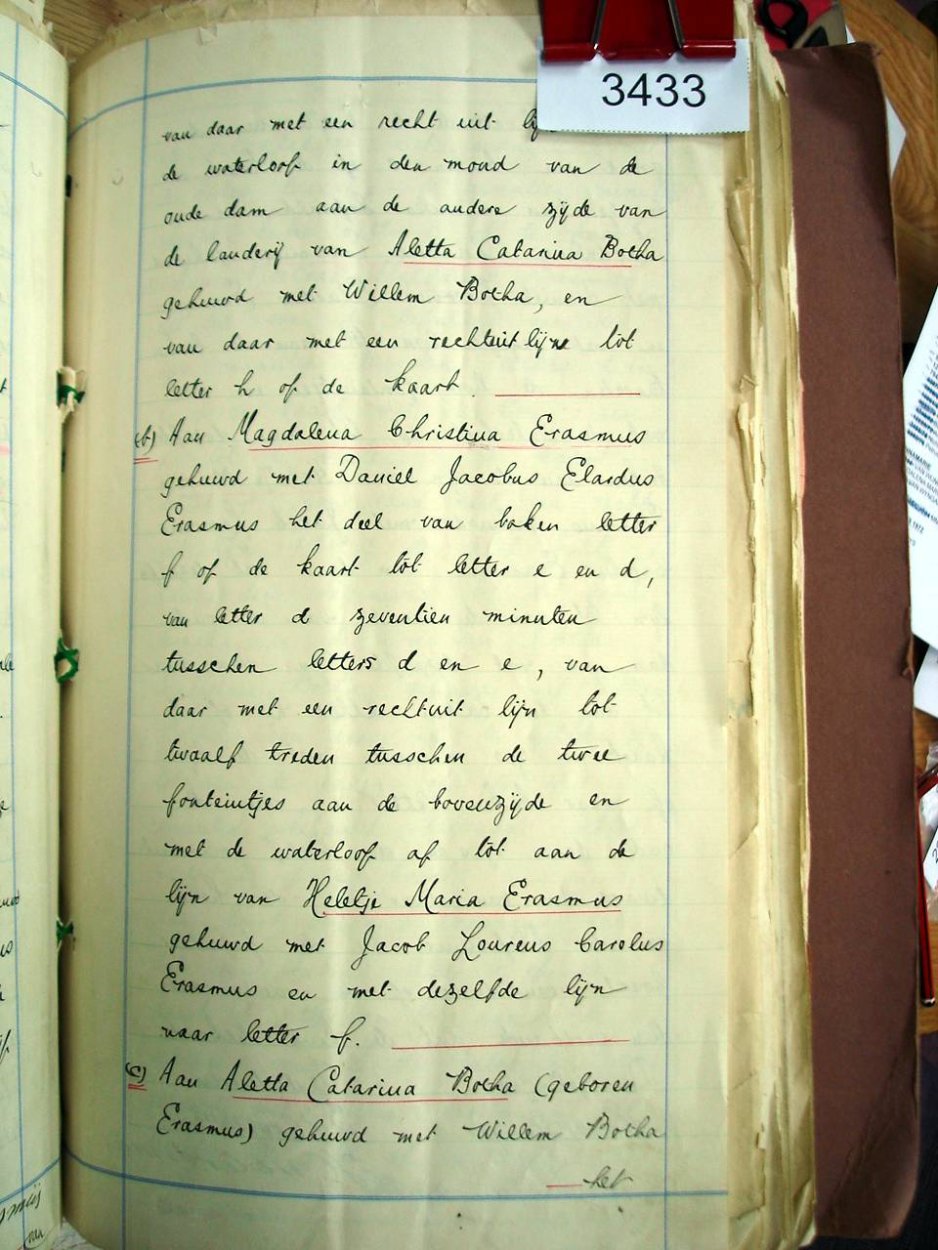 3433
van daar met een recht uit
de waterloop in den mond van de
oude dam aan de andere zijde van
de landerij van Aletta Catarina Botha
gehuwd met Willem Botha, en
van daar met een rechtuit lijne tot
letter h op de kaart.
(b) Aan Magdalena Christina Erasmus
gehuwd met Daniel Jacobus Elardus
Erasmus het deel van baken letter
f op de kaart tot letter e en d,
van letter d zeventien minuten
tusschen letters d en e, van
daar met een rechtuit lijn tot
twaalf treden tusschen de twee
fonteintjes aan de bovenzijde en
met de waterloop af tot aan de
lijn van Heletje Maria Erasmus
gehuwd met Jacob Lourens Carolus
Erasmus en met dezelfde lijn
naar letter f.
(c) Aan Aletta Catarina Botha (geboren
Erasmus) gehuwd met Willem Botha
het